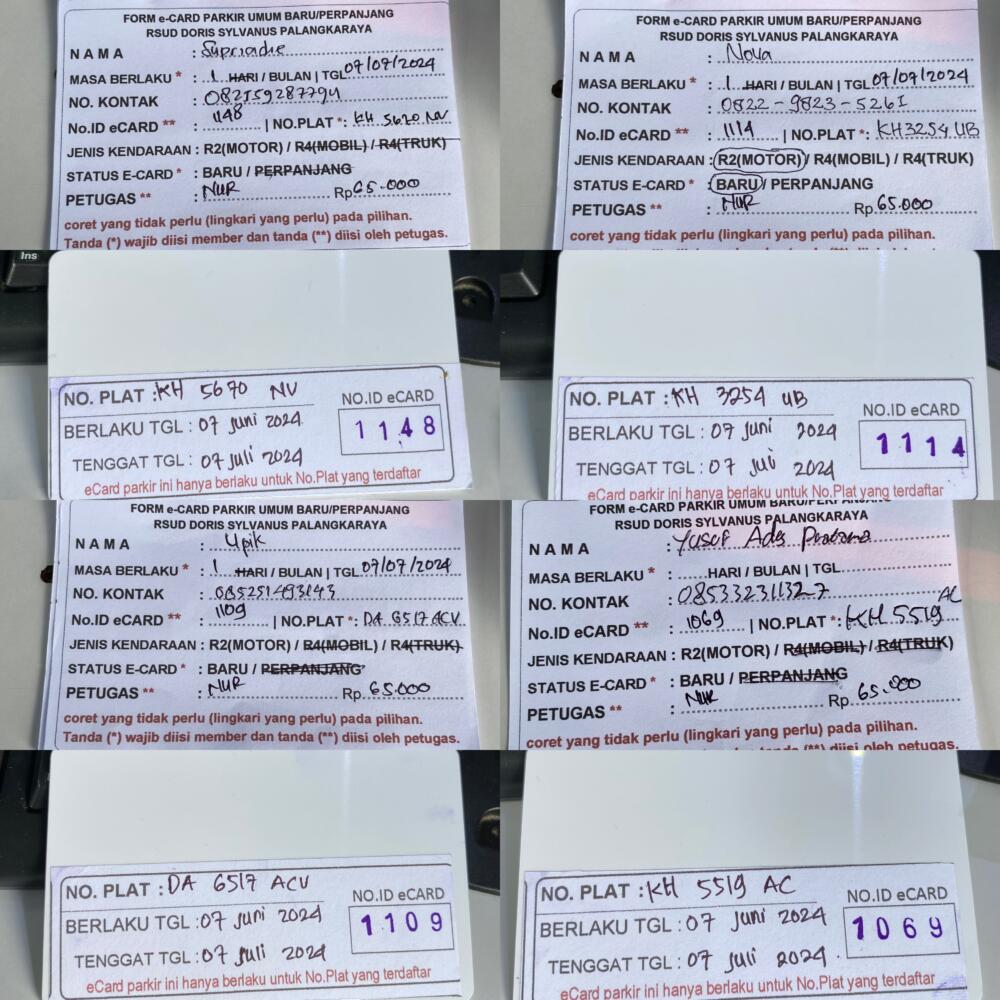 FORM e-CARD PARKIR UMUM BARU/PERPANJANG
RSUD DORIS SYLVANUS PALANGKARAYA
NAMA : Supriadie
MASA BERLAKU * : 1 HARI / BULAN | TGL 07/07/2024
NO. KONTAK : 082159287794
No.ID eCARD ** : 1148 | NO.PLAT *: KH 5670 NV
JENIS KENDARAAN : R2(MOTOR) / R4(MOBIL) / R4(TRUK)
STATUS E-CARD * : BARU / PERPANJANG
PETUGAS ** : NUR Rp. 65.000
coret yang tidak perlu (lingkari yang perlu) pada pilihan.
Tanda (*) wajib diisi member dan tanda (**) diisi oleh petugas.
FORM e-CARD PARKIR UMUM BARU/PERPANJANG
RSUD DORIS SYLVANUS PALANGKARAYA
NAMA : Nova
MASA BERLAKU * : 1 HARI / BULAN | TGL 07/07/2024
NO. KONTAK : 0822-9823-5261
No.ID eCARD ** : 1114 | NO.PLAT *: KH 3254 UB
JENIS KENDARAAN : R2(MOTOR) / R4(MOBIL) / R4(TRUK)
STATUS E-CARD * : BARU / PERPANJANG
PETUGAS ** : NUR Rp. 65.000
coret yang tidak perlu (lingkari yang perlu) pada pilihan.
Ins
NO. PLAT : KH 5670 NV
NO.ID eCARD
BERLAKU TGL : 07 Juni 2024
1148
TENGGAT TGL : 07 Juli 2024
eCard parkir ini hanya berlaku untuk No.Plat yang terdaftar
NO. PLAT : KH 3254 UB
NO.ID eCARD
BERLAKU TGL : 07 Juni 2024
1114
TENGGAT TGL : 07 Juli 2024
eCard parkir ini hanya berlaku untuk No.Plat yang terdaftar
FORM e-CARD PARKIR UMUM BARU/PERPANJANG
RSUD DORIS SYLVANUS PALANGKARAYA
NAMA : Upik
MASA BERLAKU * : 1 HARI / BULAN | TGL 07/07/2024
NO. KONTAK : 085251493143
No.ID eCARD ** : 1109 | NO.PLAT *: DA 6517 ACV
JENIS KENDARAAN : R2(MOTOR) / R4(MOBIL) / R4(TRUK)
STATUS E-CARD * : BARU / PERPANJANG
PETUGAS ** : NUR Rp. 65.000
coret yang tidak perlu (lingkari yang perlu) pada pilihan.
Tanda (*) wajib diisi member dan tanda (**) diisi oleh petugas.
FORM e-CARD PARKIR UMUM BARU/PERPANJANG
RSUD DORIS SYLVANUS PALANGKARAYA
NAMA : Yusuf
MASA BERLAKU * : HARI / BULAN | TGL
NO. KONTAK : 085332311327
No.ID eCARD ** : 1069 | NO.PLAT *: KH 5519 AC
JENIS KENDARAAN : R2(MOTOR) / R4(MOBIL) / R4(TRUK)
STATUS E-CARD * : BARU / PERPANJANG
PETUGAS ** : NUR Rp. 65.000
coret yang tidak perlu (lingkari yang perlu) pada pilihan.
tanda (**) diisi oleh petugas.
NO. PLAT : DA 6517 ACV
NO.ID eCARD
BERLAKU TGL : 07 Juni 2024
1109
TENGGAT TGL : 07 Juli 2024
eCard parkir ini hanya berlaku untuk No.Plat yang terdaftar
NO. PLAT : KH 5519 AC
NO.ID eCARD
BERLAKU TGL : 07 Juni 2024
1069
TENGGAT TGL : 07 Juli 2024
eCard parkir ini hanya berlaku untuk No.Plat yang terdaftar